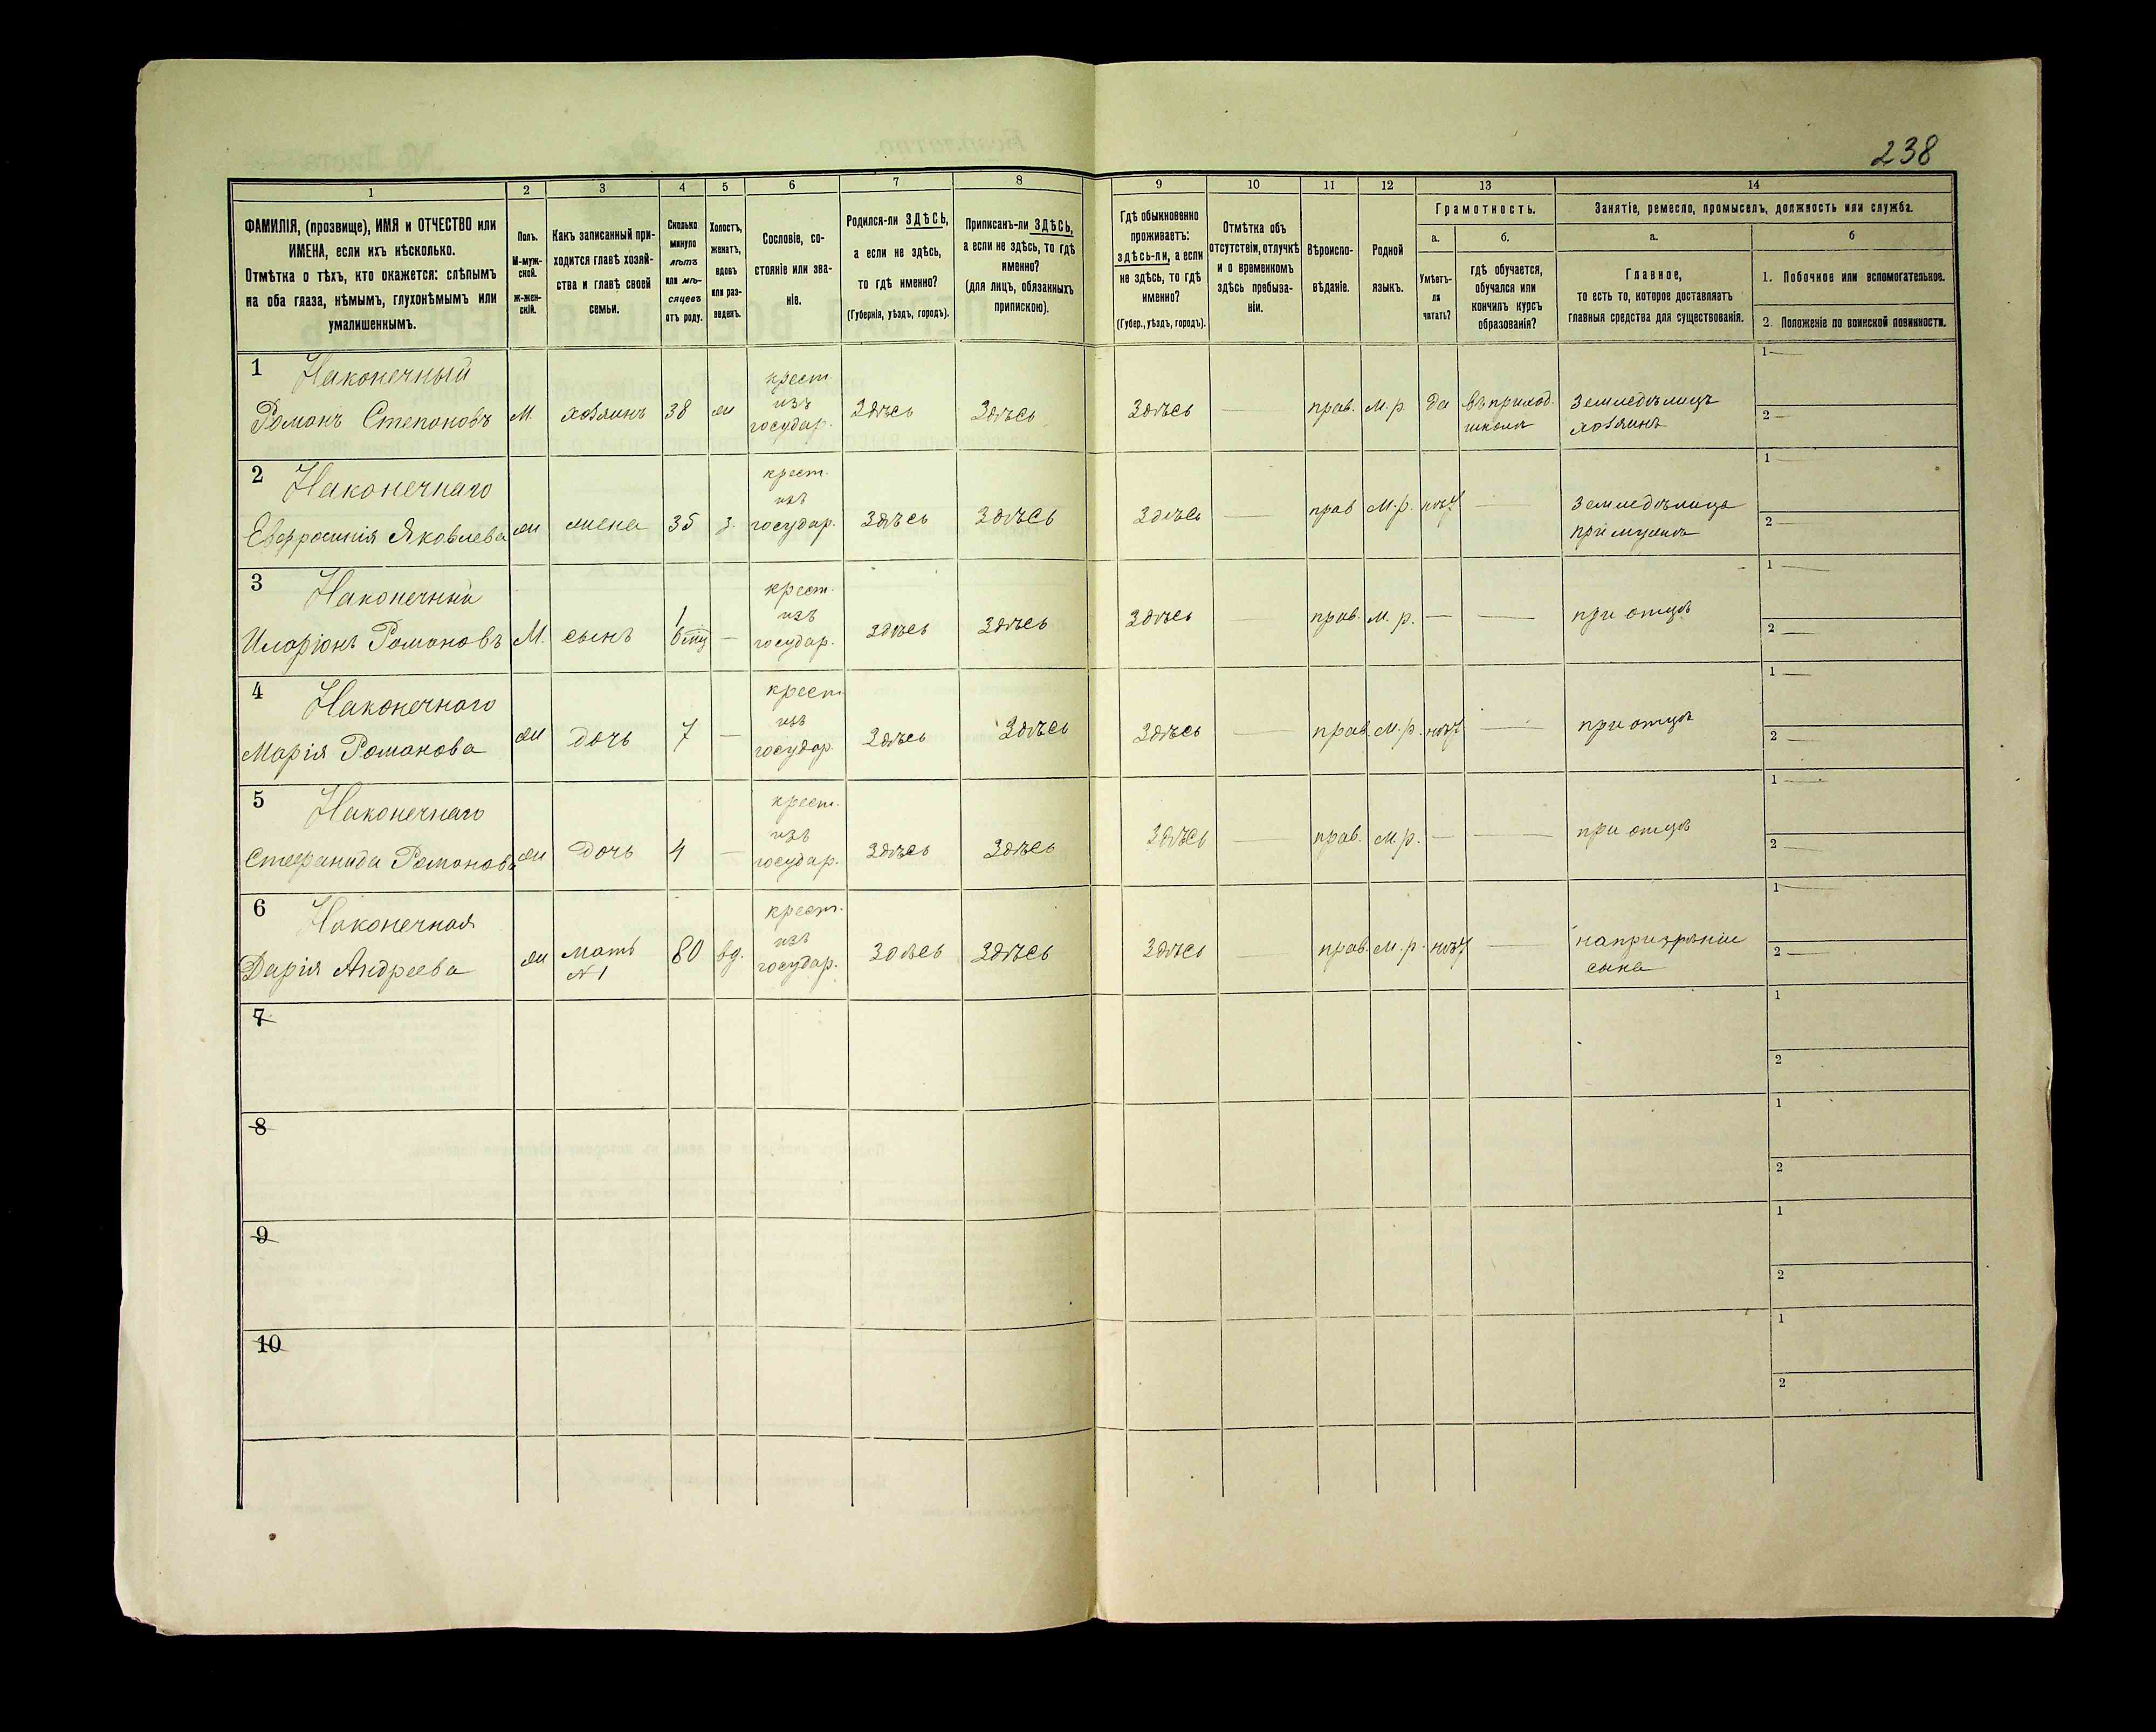 238
1 2 3 4 5 6 7 8 9 10 11 12 13 14
ФАМИЛІЯ, (прозвище), ИМЯ и ОТЧЕСТВО или
ИМЕНА, если ихъ нѣсколько.
Отмѣтка о тѣхъ, кто окажется: слѣпымъ
на оба глаза, нѣмымъ, глухонѣмымъ или
умалишеннымъ.
Полъ.
М-муж-
ской.
Ж-жен-
скій.
Какъ записанный при-
ходится главѣ хозяй-
ства и главѣ своей
семьи.
Сколько
минуло
лѣтъ
или мѣ-
сяцевъ
отъ роду.
Холостъ,
женатъ,
вдовъ
или раз-
веденъ.
Сословіе, со-
стояніе или зва-
ніе.
Родился-ли ЗДѢСЬ,
а если не здѣсь,
то гдѣ именно?
(Губернія, уѣздъ, городъ).
Приписанъ-ли ЗДѢСЬ,
а если не здѣсь, то гдѣ
именно?
(для лицъ, обязанныхъ
припискою).
Гдѣ обыкновенно
проживаетъ:
здѣсь-ли, а если
не здѣсь, то гдѣ
именно?
(Губер., уѣздъ, городъ).
Отмѣтка объ
отсутствіи, отлучкѣ
и о временномъ
здѣсь пребыва-
ніи.
Вѣроиспо-
вѣданіе.
Родной
языкъ.
Грамотность.
а.
Умѣетъ-
ли
читать?
б.
гдѣ обучается,
обучался или
кончилъ курсъ
образованія?
Занятіе, ремесло, промыселъ, должность или служба.
а.
Главное,
то есть то, которое доставляетъ
главныя средства для существованія.
б
1. Побочное или вспомогательное.
2. Положеніе по воинской повинности.
1 Наконечный крест. 1 —
изъ
Романъ Степановъ М. хозяинъ 38 ж государ. Здѣсь Здѣсь Здѣсь — прав. м.р. да въ приход. земледѣлецъ 2 —
школѣ хозяинъ
2 Наконечнаго крест. 1 —
изъ
Евфросинія Яковлева ж жена 35 з. государ. Здѣсь Здѣсь Здѣсь — прав м.р. нѣт — земледѣлица 2 —
при мужѣ
3 Наконечный крест. 1 —
изъ
Иларіонъ Романовъ М. сынъ 1 6 мц — государ. здѣсь здѣсь здѣсь — прав. м.р. — — при отцѣ 2 —
4 Наконечного крест 1 —
изъ
Марія Романова ж дочь 7 — государ. здѣсь здѣсь здѣсь — прав. м.р. нѣт — при отцѣ 2 —
5 Наконечнаго крест. 1 —
изъ
Стефанида Романова ж дочь 4 — государ. здѣсь здѣсь здѣсь — прав. м.р. — — при отцѣ 2 —
6 Наконечная крест. 1 —
изъ
Дарія Андреева ж мать 80 вд. государ. здѣсь здѣсь здѣсь — прав. м.р. нѣт — на призрѣніи 2 —
№1 сына
7 1
2
8 1
2
9 1
2
10 1
2